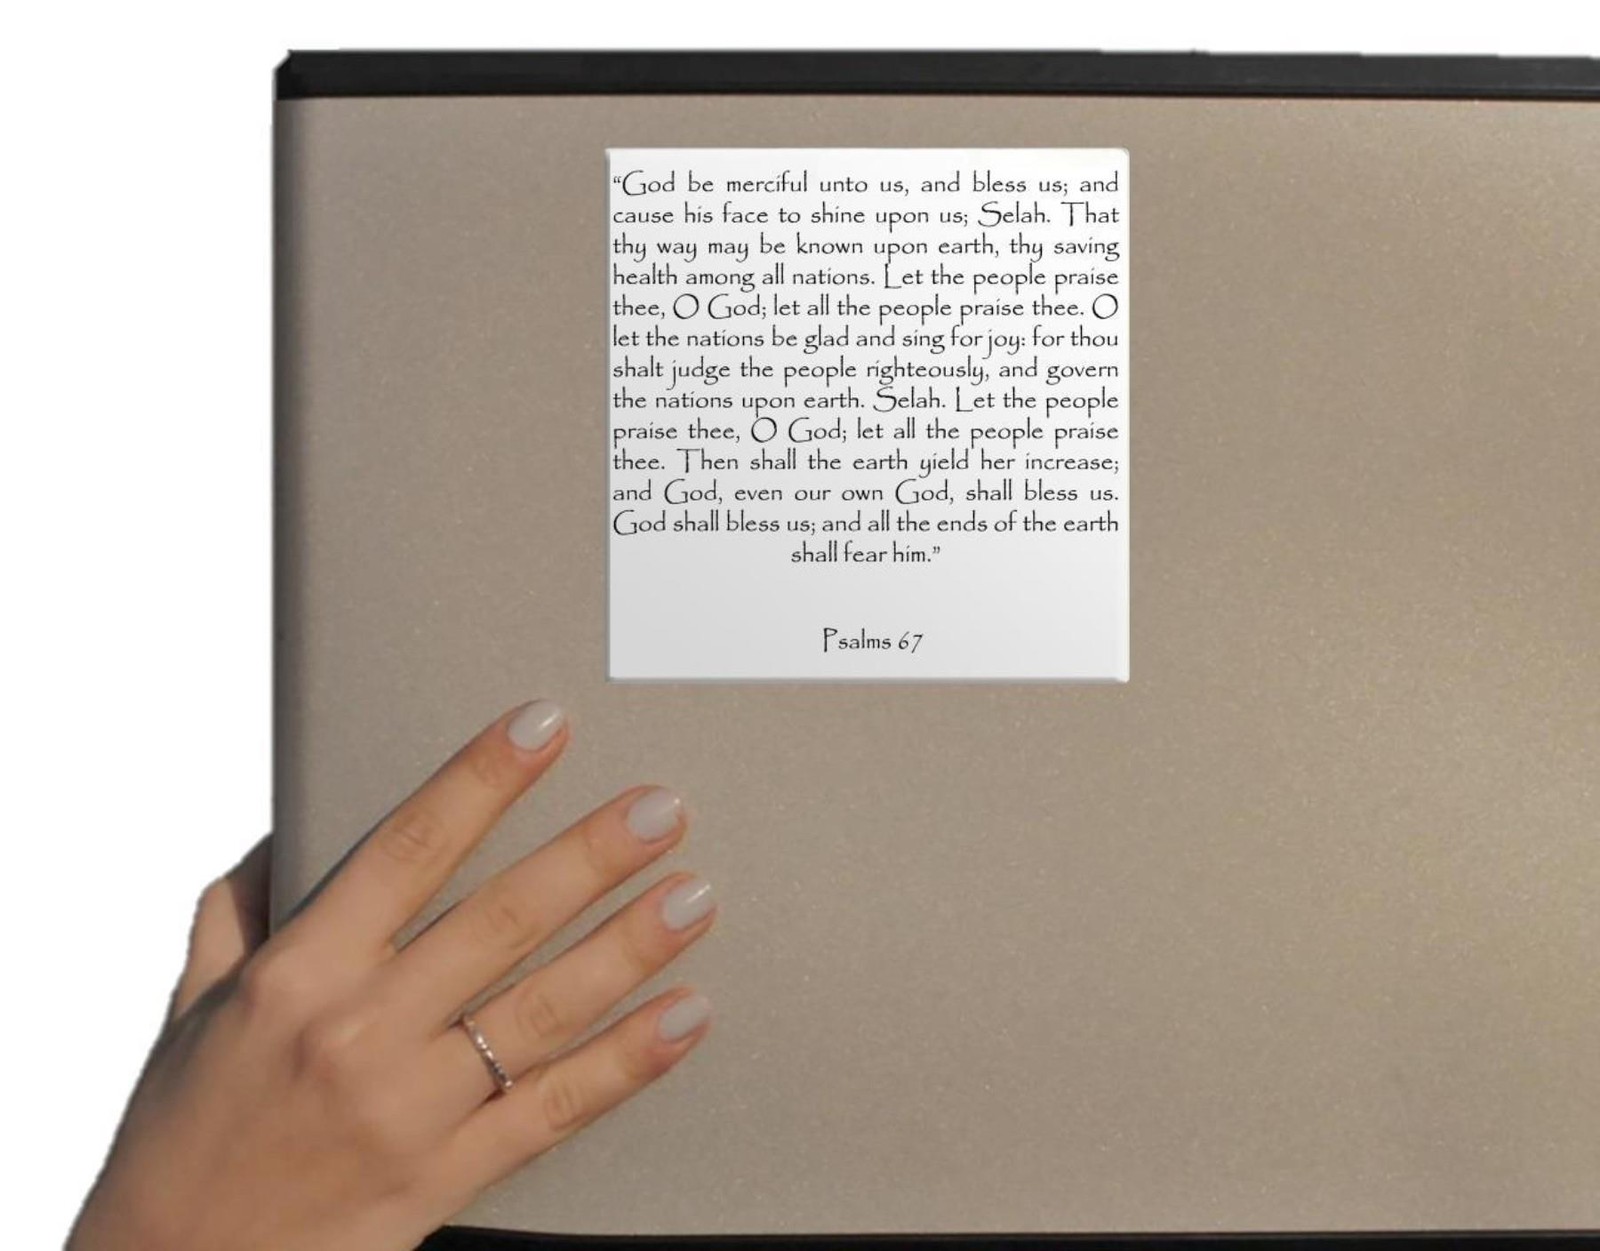 “God be merciful unto us, and bless us; and
cause his face to shine upon us; Selah. That
thy way may be known upon earth, thy saving
health among all nations. Let the people praise
thee, O God; let all the people praise thee. O
let the nations be glad and sing for joy: for thou
shalt judge the people righteously, and govern
the nations upon earth. Selah. Let the people
praise thee, O God; let all the people praise
thee. Then shall the earth yield her increase;
and God, even our own God, shall bless us.
God shall bless us; and all the ends of the earth
shall fear him.”
Psalms 67